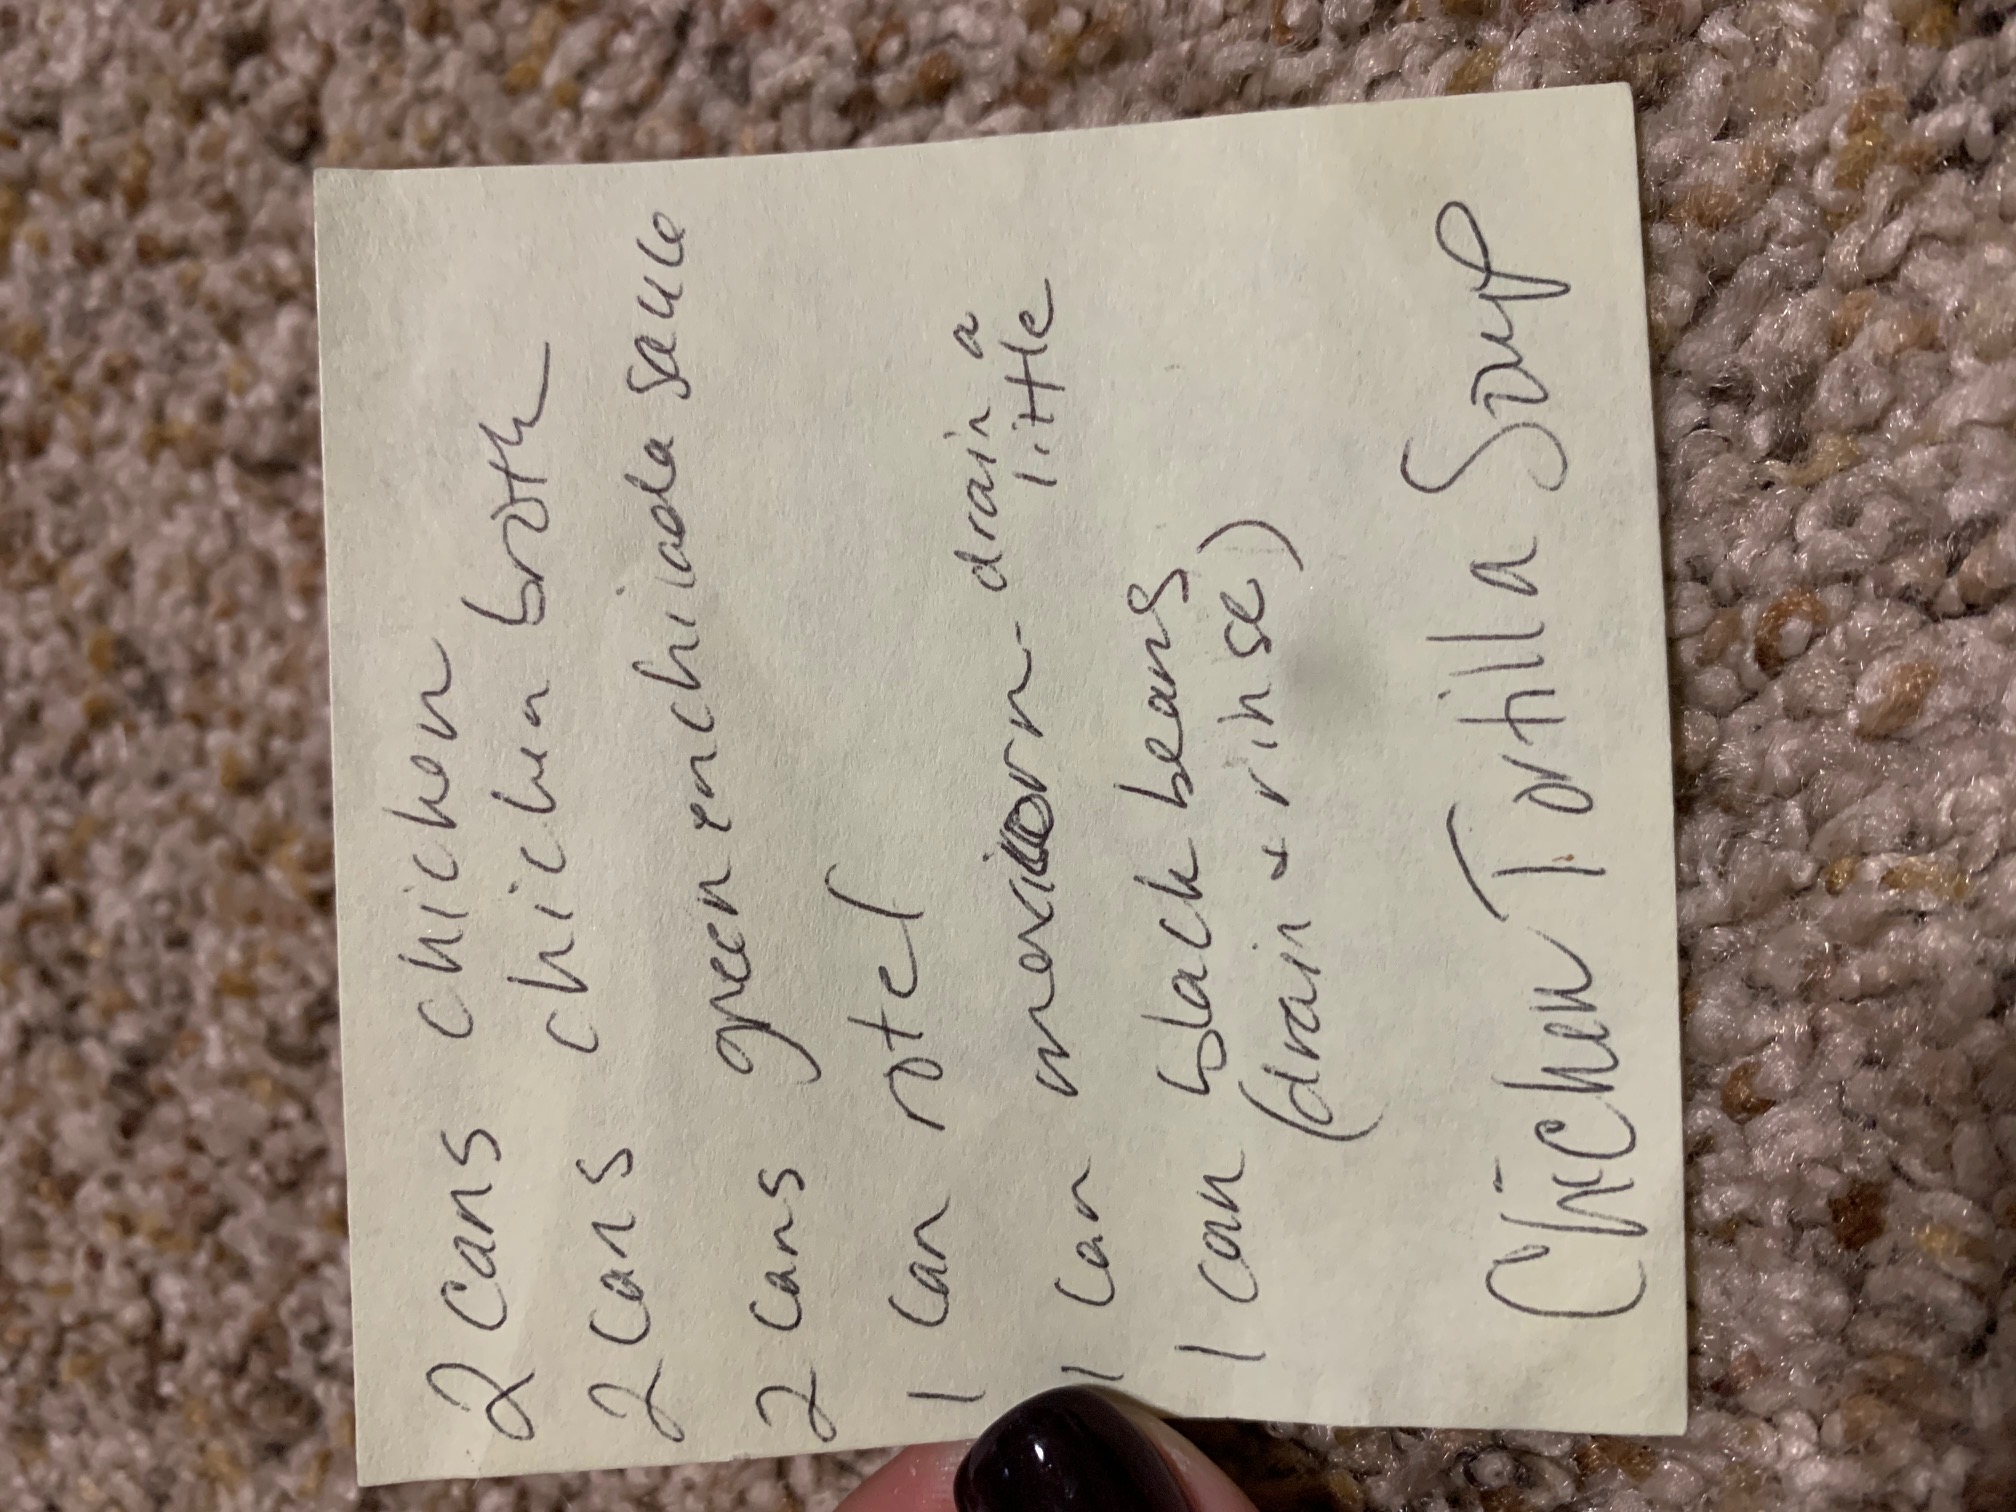 2 cans chicken
2 cans chicken broth
2 cans green enchilada sauce
1 can rotel
1 can mexicorn - drain a
little
1 can black beans
(drain & rinse)
Chicken Tortilla Soup